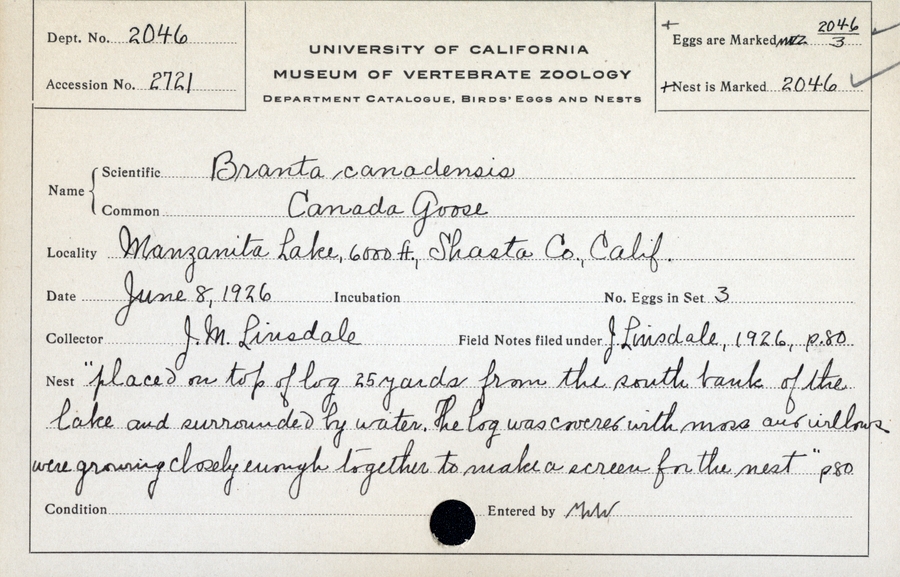 Dept. No. 2046
Accession No. 2721
UNIVERSITY OF CALIFORNIA
MUSEUM OF VERTEBRATE ZOOLOGY
DEPARTMENT CATALOGUE, BIRDS' EGGS AND NESTS
+ Eggs are Marked MVZ 2046/3
+Nest is Marked 2046
Name
Scientific Branta canadensis
Common Canada Goose
Locality Manzanita Lake, 6000 ft., Shasta Co., Calif.
Date June 8, 1926 Incubation No. Eggs in Set 3
Collector J. M. Linsdale Field Notes filed under J. Linsdale, 1926, p.80
Nest "placed on top of log 25 yards from the south bank of the
lake and surrounded by water. The log was covered with moss and willows
were growing closely enough together to make a screen for the nest" p80
Condition Entered by